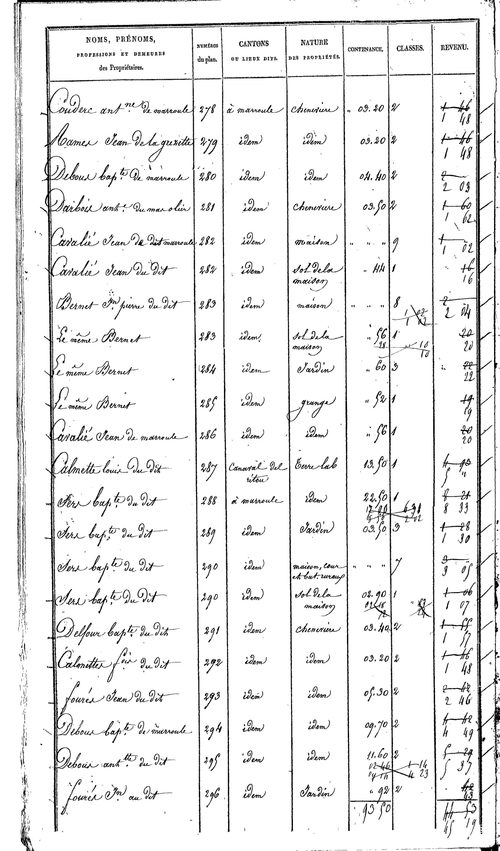 NOMS, PRÉNOMS, PROFESSIONS ET DEMEURES des Propriétaires. NUMÉROS du plan. CANTONS OU LIEUX DITS. NATURE DES PROPRIÉTÉS. CONTENANCE. CLASSES. REVENU.
Couderc ant.ne de marroule 278 à marroule cheneviere " 03.20 2 1 46
1 48
Rames Jean de la grenette 279 idem idem 03.20 2 1 46
1 48
Debous bap.te de marroule 280 idem idem 04.40 2 2
2 03
Darbois ant. du mas olié 281 idem cheneviere 03.50 2 1 60
1 62
Cavalié Jean dit marroule 282 idem maison " " " 9 1
1 02
Cavalié Jean du dit 282 idem sol de la maison " 44 1 16
16
Bernet J.n pierre du dit 283 idem maison " " " 8 2
2 04
Le même Bernet 283 idem sol de la maison " 56 1 20
20
Le même Bernet 284 idem Jardin " 60 3 22
22
Le même Bernet 285 idem grange " 52 1 19
19
Cavalié Jean de marroule 286 idem idem " 56 1 20
20
Calmette louis du dit 287 Canaval del ritou Terre lab 13.50 1 4 90
5 "
Sers bap.te du dit 288 à marroule idem 22.50 1 8 21
8 33
Sers bap.te du dit 289 idem Jardin 03.50 3 1 28
1 30
Sers bap.te du dit 290 idem maison, cour et bat. ruraux " " " 7 3
3 05
Sers bap.te du dit 290 idem sol de la maison 02.90 1 1 06
1 07
Delfour bap.te du dit 291 idem cheneviere 03.40 2 1 55
1 57
Calmettes f.ois du dit 292 idem idem 03.20 2 1 46
1 48
fourés Jean du dit 293 idem idem 05.30 2 2 42
2 46
Debous bap.te de marroule 294 idem idem 09.70 2 4 42
4 49
Debous ant.ne du dit 295 idem idem 11.60 2 5 29
5 37
fourés J.n au dit 296 idem Jardin " 92 2 42
43
93 50 44 53
45 19